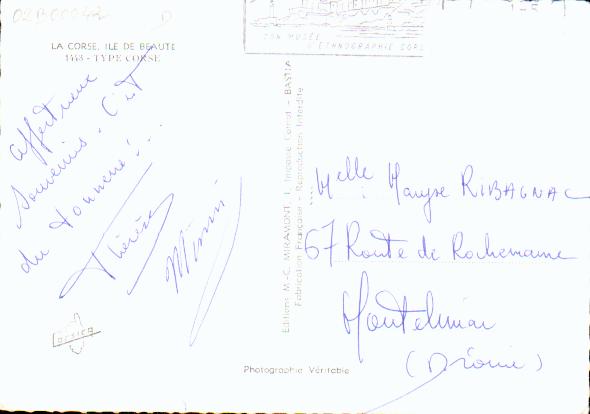 02B00042 D
LA CORSE, ILE DE BEAUTÉ
1448 - TYPE CORSE
affectueux
Souvenirs. C'est
du tonnerre!...
Thérèse
Mimi
DESICA
SON MUSÉE
D'ETHNOGRAPHIE CORSE
Editions M.-C. MIRAMONT - 1, Impasse Carrat - BASTIA
Fabrication Française - Reproduction Interdite
Melle Maryse RIBAGNAC
67 Route de Rochemaure
Montélimar
(Drôme)
Photographie Véritable